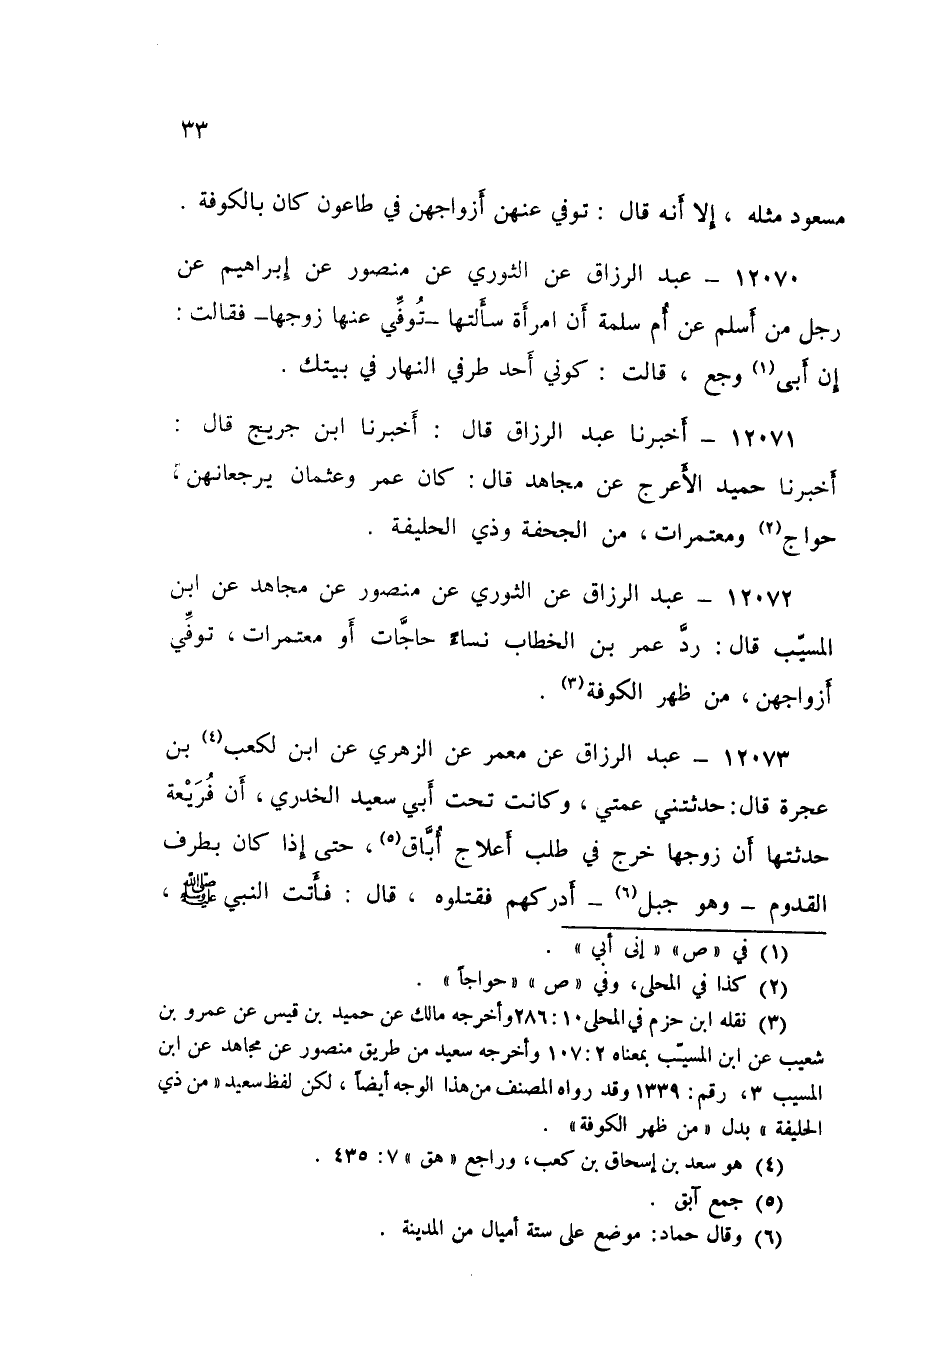 ٣٣
مسعود مثله ، إلا أنه قال : توفي عنهن أزواجهن في طاعون كان بالكوفة .
١٢٠٧٠ – عبد الرزاق عن الثوري عن منصور عن إبراهيم عن
رجل من أسلم عن أُم سلمة أن امرأة سألتها –تُوفِّي عنها زوجها– فقالت :
إن أبى(١) وجع ، قالت : كوني أحد طرفي النهار في بيتك .
١٢٠٧١ – أخبرنا عبد الرزاق قال : أخبرنا ابن جريج قال :
أخبرنا حميد الأعرج عن مجاهد قال : كان عمر وعثمان يرجعانهن ،
حواج(٢) ومعتمرات ، من الجحفة وذي الحليفة .
١٢٠٧٢ – عبد الرزاق عن الثوري عن منصور عن مجاهد عن ابن
المسيّب قال : ردَّ عمر بن الخطاب نساءً حاجَّات أو معتمرات ، توفِّي
أزواجهن ، من ظهر الكوفة(٣) .
١٢٠٧٣ – عبد الرزاق عن معمر عن الزهري عن ابن لكعب(٤) بن
عجرة قال : حدثتني عمتي ، وكانت تحت أبي سعيد الخدري ، أن فُرَيْعة
حدثتها أن زوجها خرج في طلب أعلاج أُبَّاق(٥) ، حتى إذا كان بطرف
القدوم – وهو جبل(٦) – أدركهم فقتلوه ، قال : فأتت النبي ﷺ ،
(١) في « ص» « إنى أبي » .
(٢) كذا في المحلى، وفي « ص » « حواجاً » .
(٣) نقله ابن حزم في المحلى ١٠ : ٢٨٦ وأخرجه مالك عن حميد بن قيس عن عمرو بن
شعيب عن ابن المسيّب بمعناه ٢ : ١٠٧ وأخرجه سعيد من طريق منصور عن مجاهد عن ابن
المسيب ٣، رقم : ١٣٣٩ وقد رواه المصنف من هذا الوجه أيضاً ، لكن لفظ سعيد « من ذي
الحليفة » بدل « من ظهر الكوفة» .
(٤) هو سعد بن إسحاق بن كعب، وراجع « هق » ٧ : ٤٣٥ .
(٥) جمع آبق .
(٦) وقال حماد: موضع على ستة أميال من المدينة .